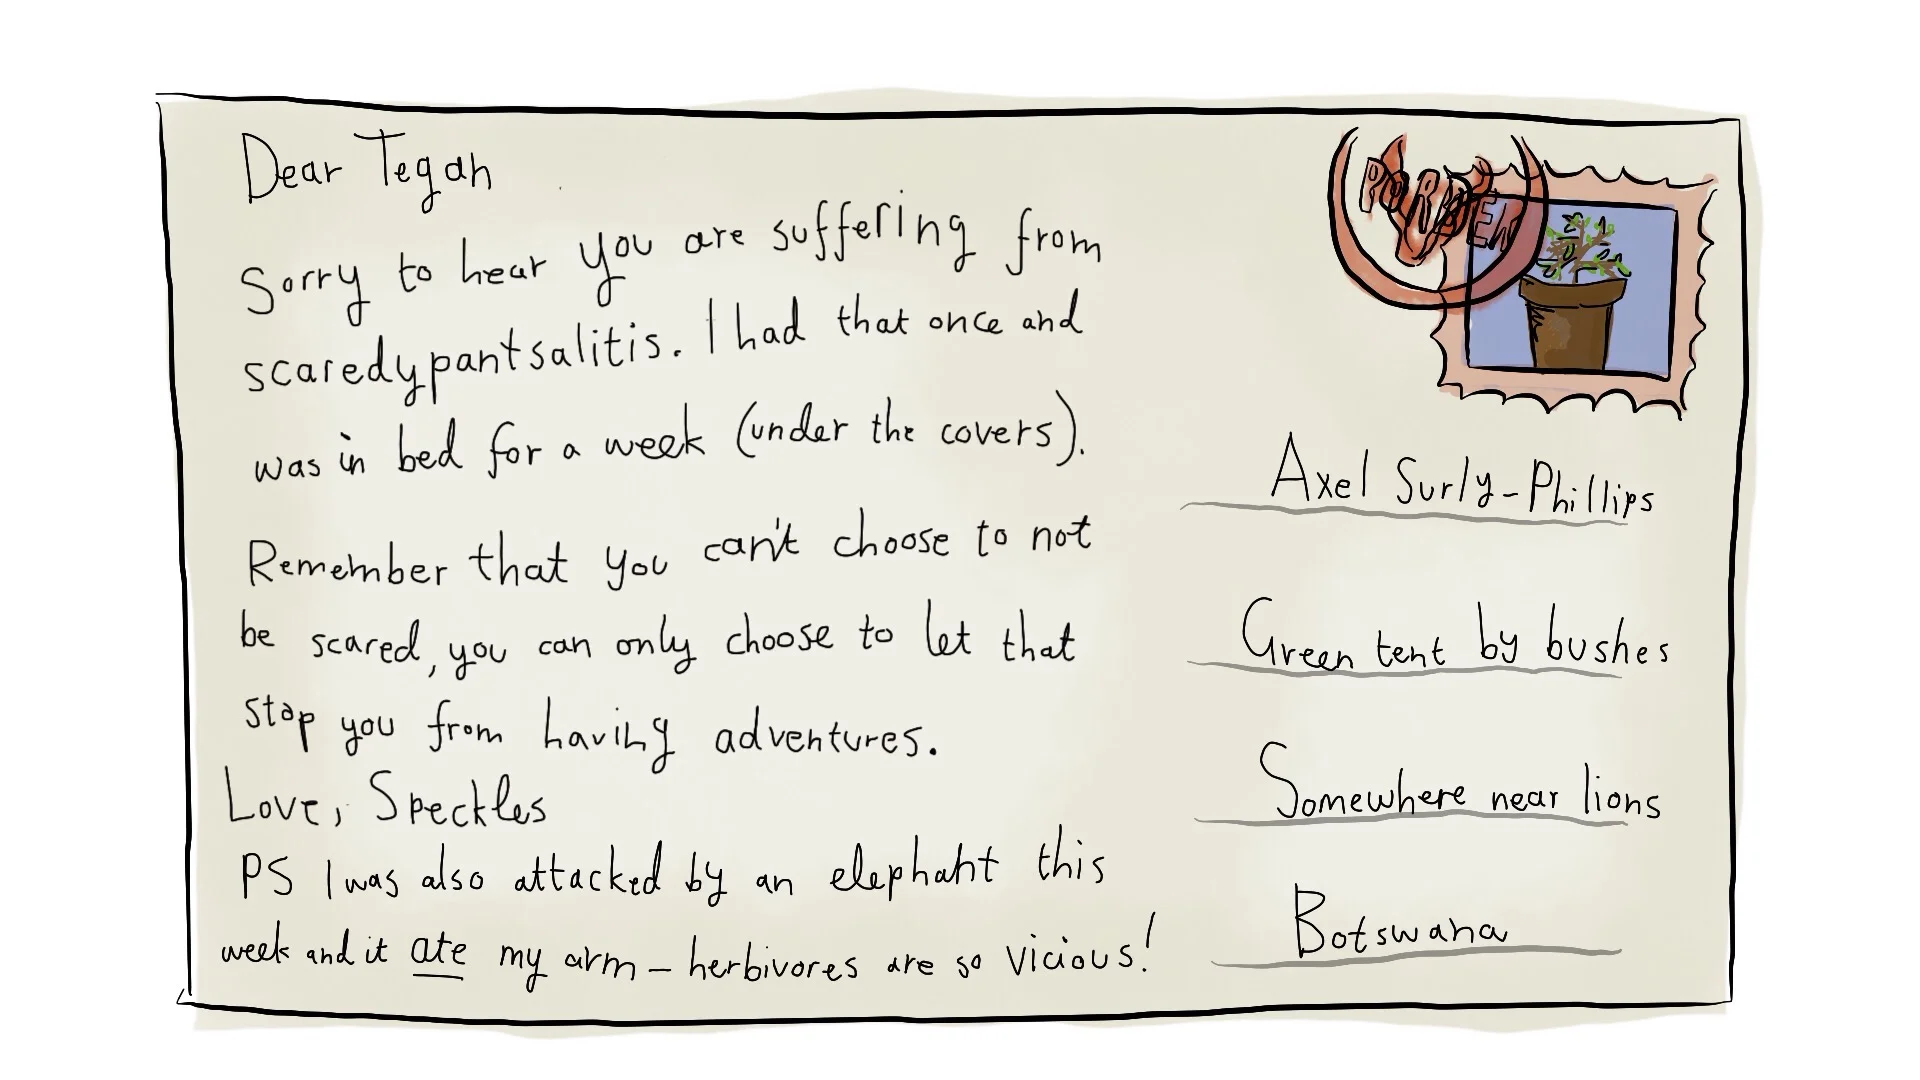 Dear Tegan
Sorry to hear you are suffering from
scaredypantsalitis. I had that once and
was in bed for a week (under the covers).
Remember that you can't choose to not
be scared, you can only choose to let that
stop you from having adventures.
Love, Speckles
PS I was also attacked by an elephant this
week and it ate my arm – herbivores are so vicious!
Axel Surly-Phillips
Green tent by bushes
Somewhere near lions
Botswana